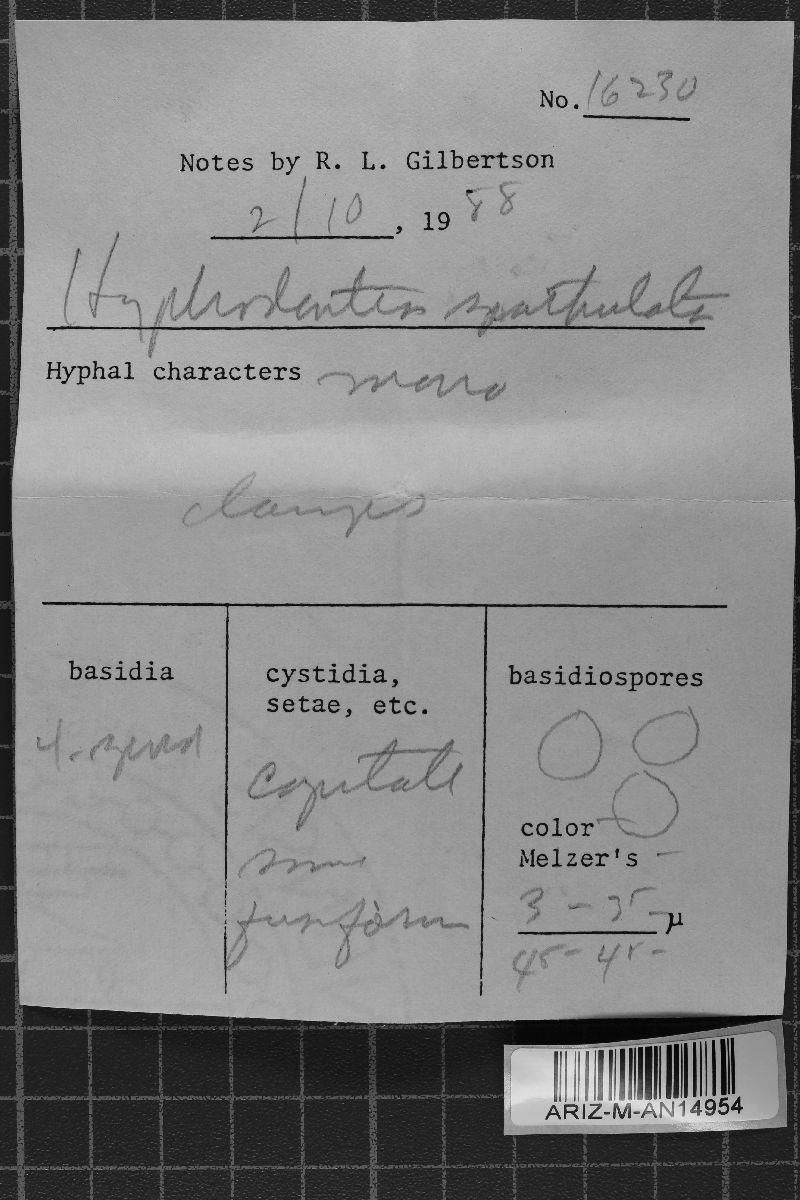 No. 16230
Notes by R. L. Gilbertson
2/10, 1988
Hyphodontia spathulata
Hyphal characters mono
clamps
basidia
4-spored
cystidia,
setae, etc.
capitate
some
fusiform
basidiospores
color –
Melzer's –
3 – 35 – μ
45 – 45 –
ARIZ-M-AN14954